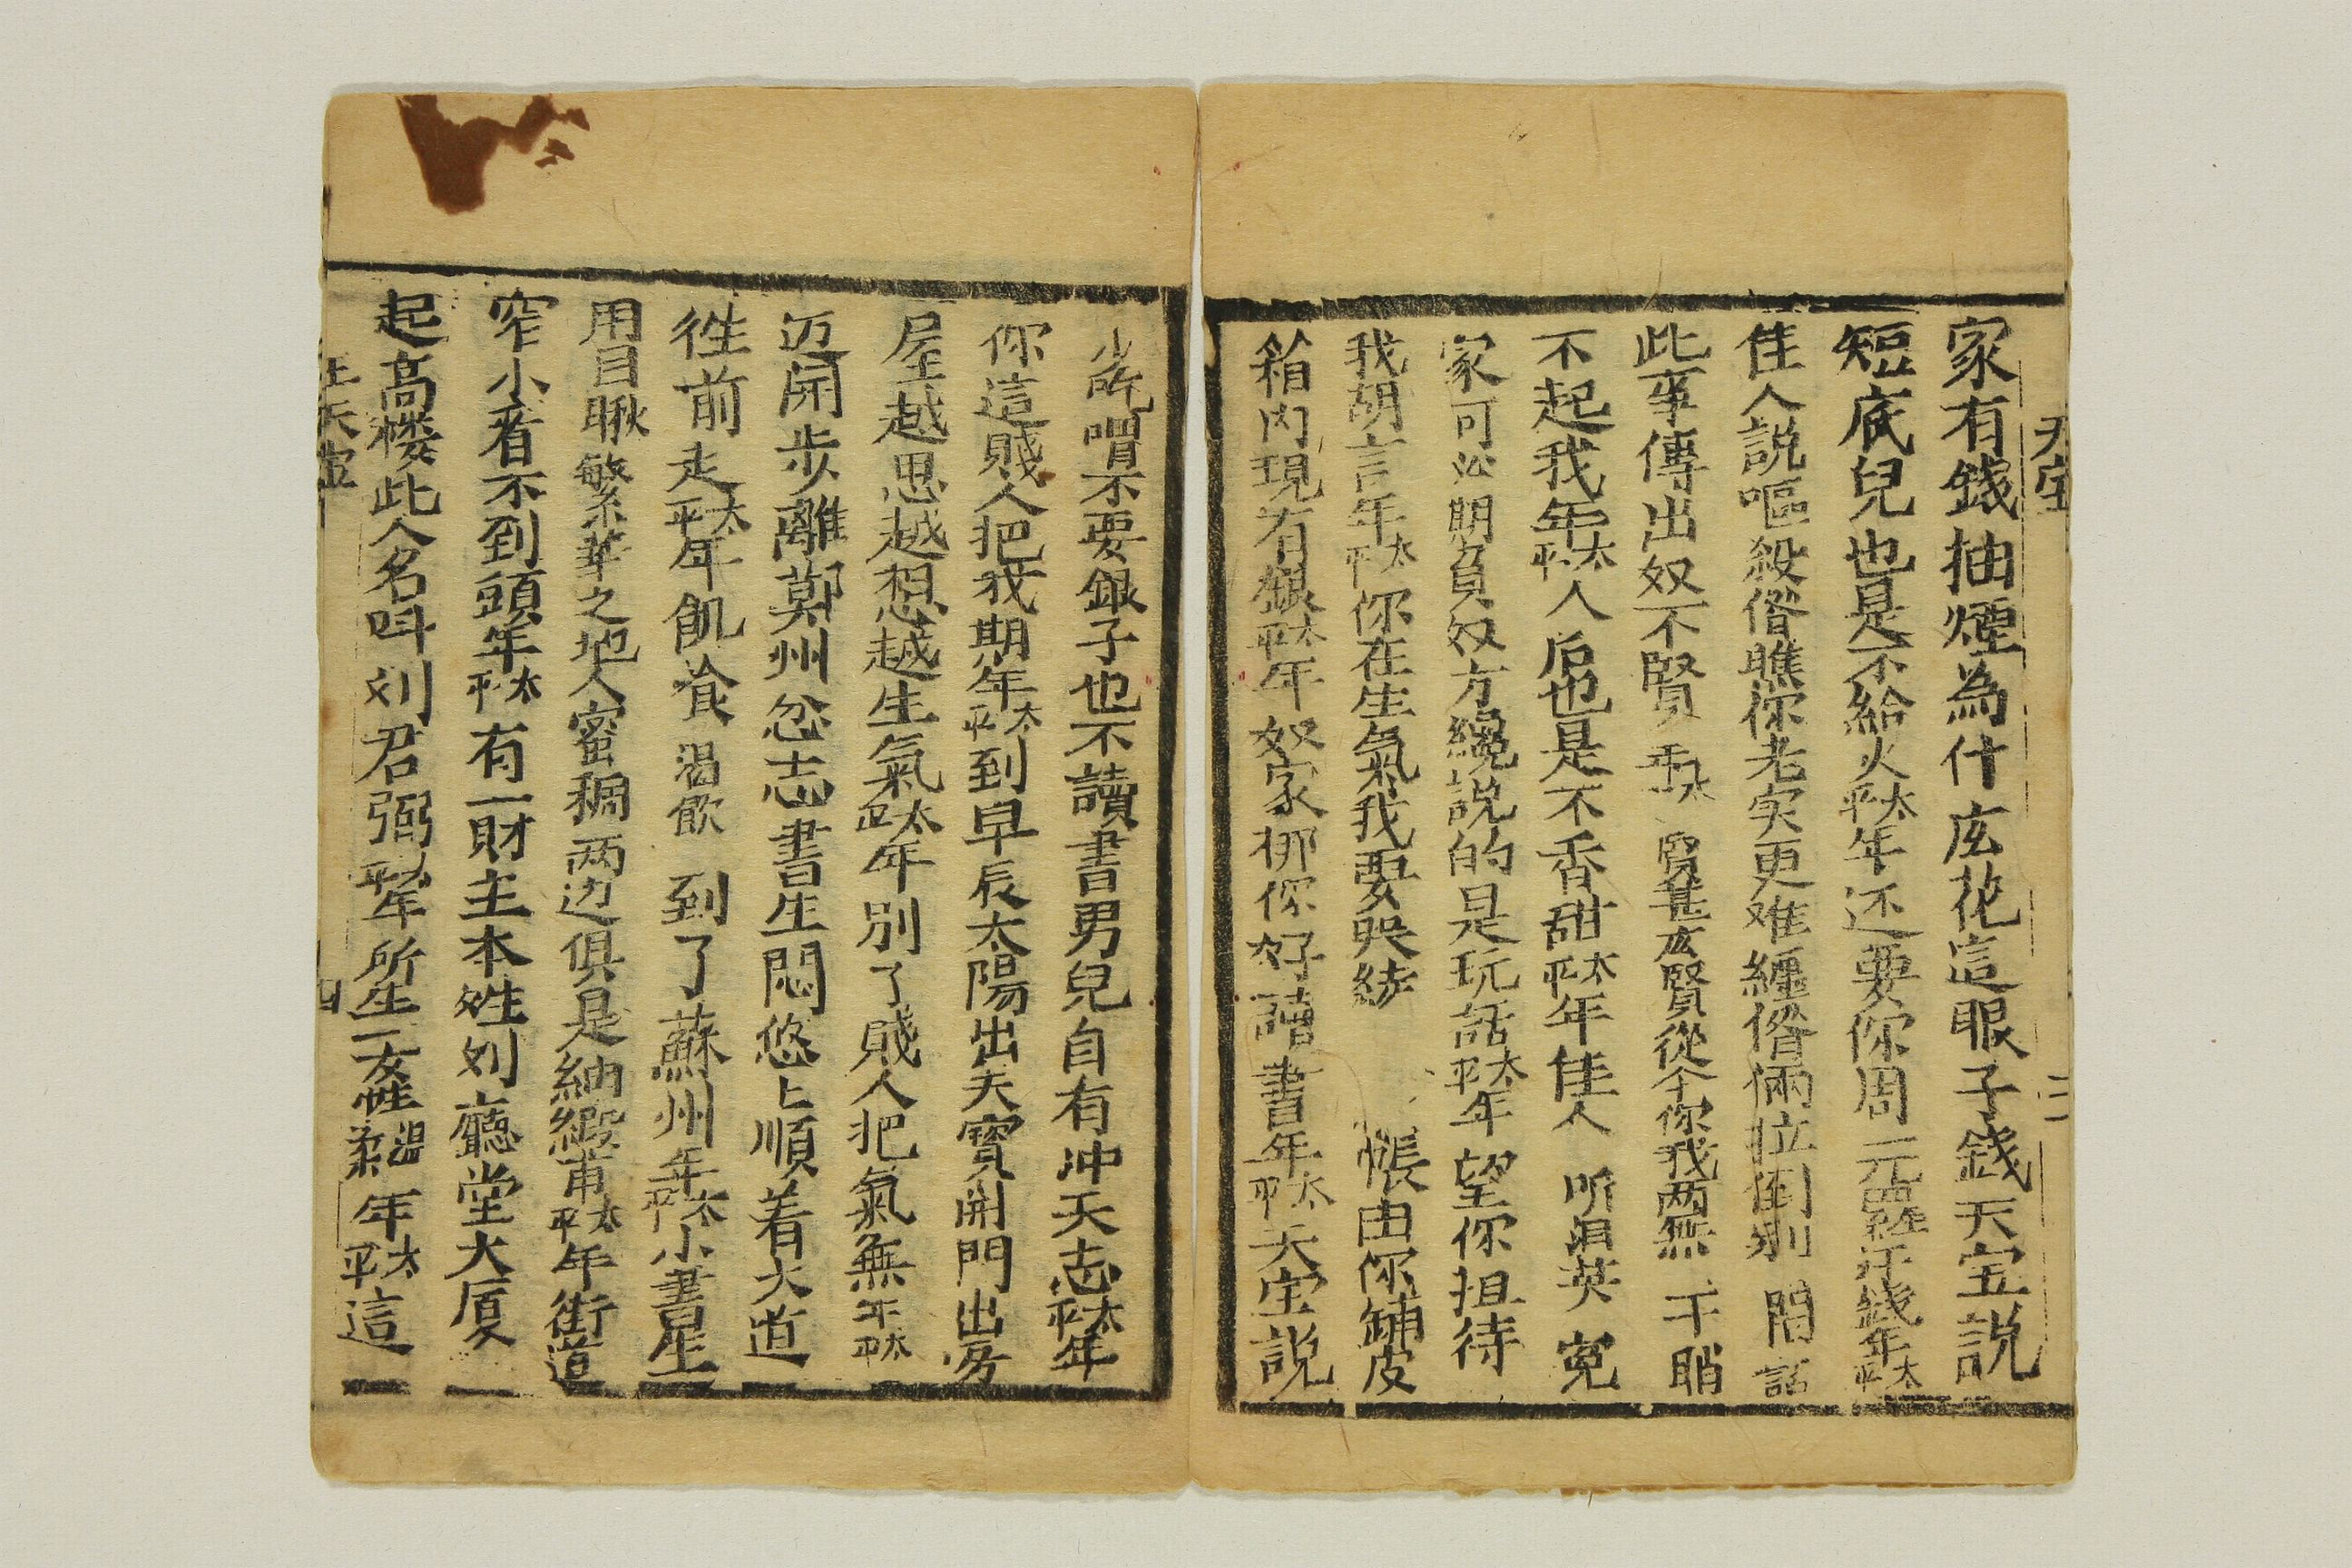 天宝 三
家有錢抽煙為什庅花這眼子錢天宝説
短底兒也是不給火太平年还要你周元汗錢年太平
佳人説嘔殺偺瞧你老实更难纏偺倆拉倒别閗話
此事傳出奴不賢年太平賢甚庅賢從今你我两無干眧
不起我年太平人后也是不香甜太平年佳人听泪英寃
家可必期負奴方纔説的是玩話太平年望你担待
我胡言年太平你在生氣我要哭綾帳由你鋪皮
箱内現有銀太平年奴家挪你好讀書年太平天宝説
听喟不要銀子也不讀書男兒自有冲天志太平年
你這賤人把我期年太平到早辰太陽出天寳開門出房
屋越思越想越生氣太平年別了賤人把氣無年太平
迈開步離鄭州忿志書生悶悠上順着大道
徃前走太平年飢飡渴飲到了蘇州年太平小書生
用目瞅繁華之地人蜜稠两边俱是納緞甫太平年街道
窄小看不到頭年太平有一財主本姓刘廳堂大厦
起高楼此人名呌刘君弼太平年所生一女性温柔年太平這
王天宝 四